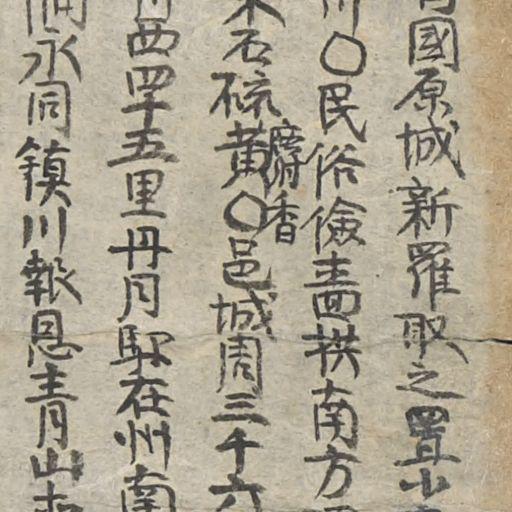 國原城新羅取之置小
〇民俗儉嗇拱南方
石硫黃麝香〇邑城周三千六
西四十五里丹月駅在州南
永同鎮川報恩青山